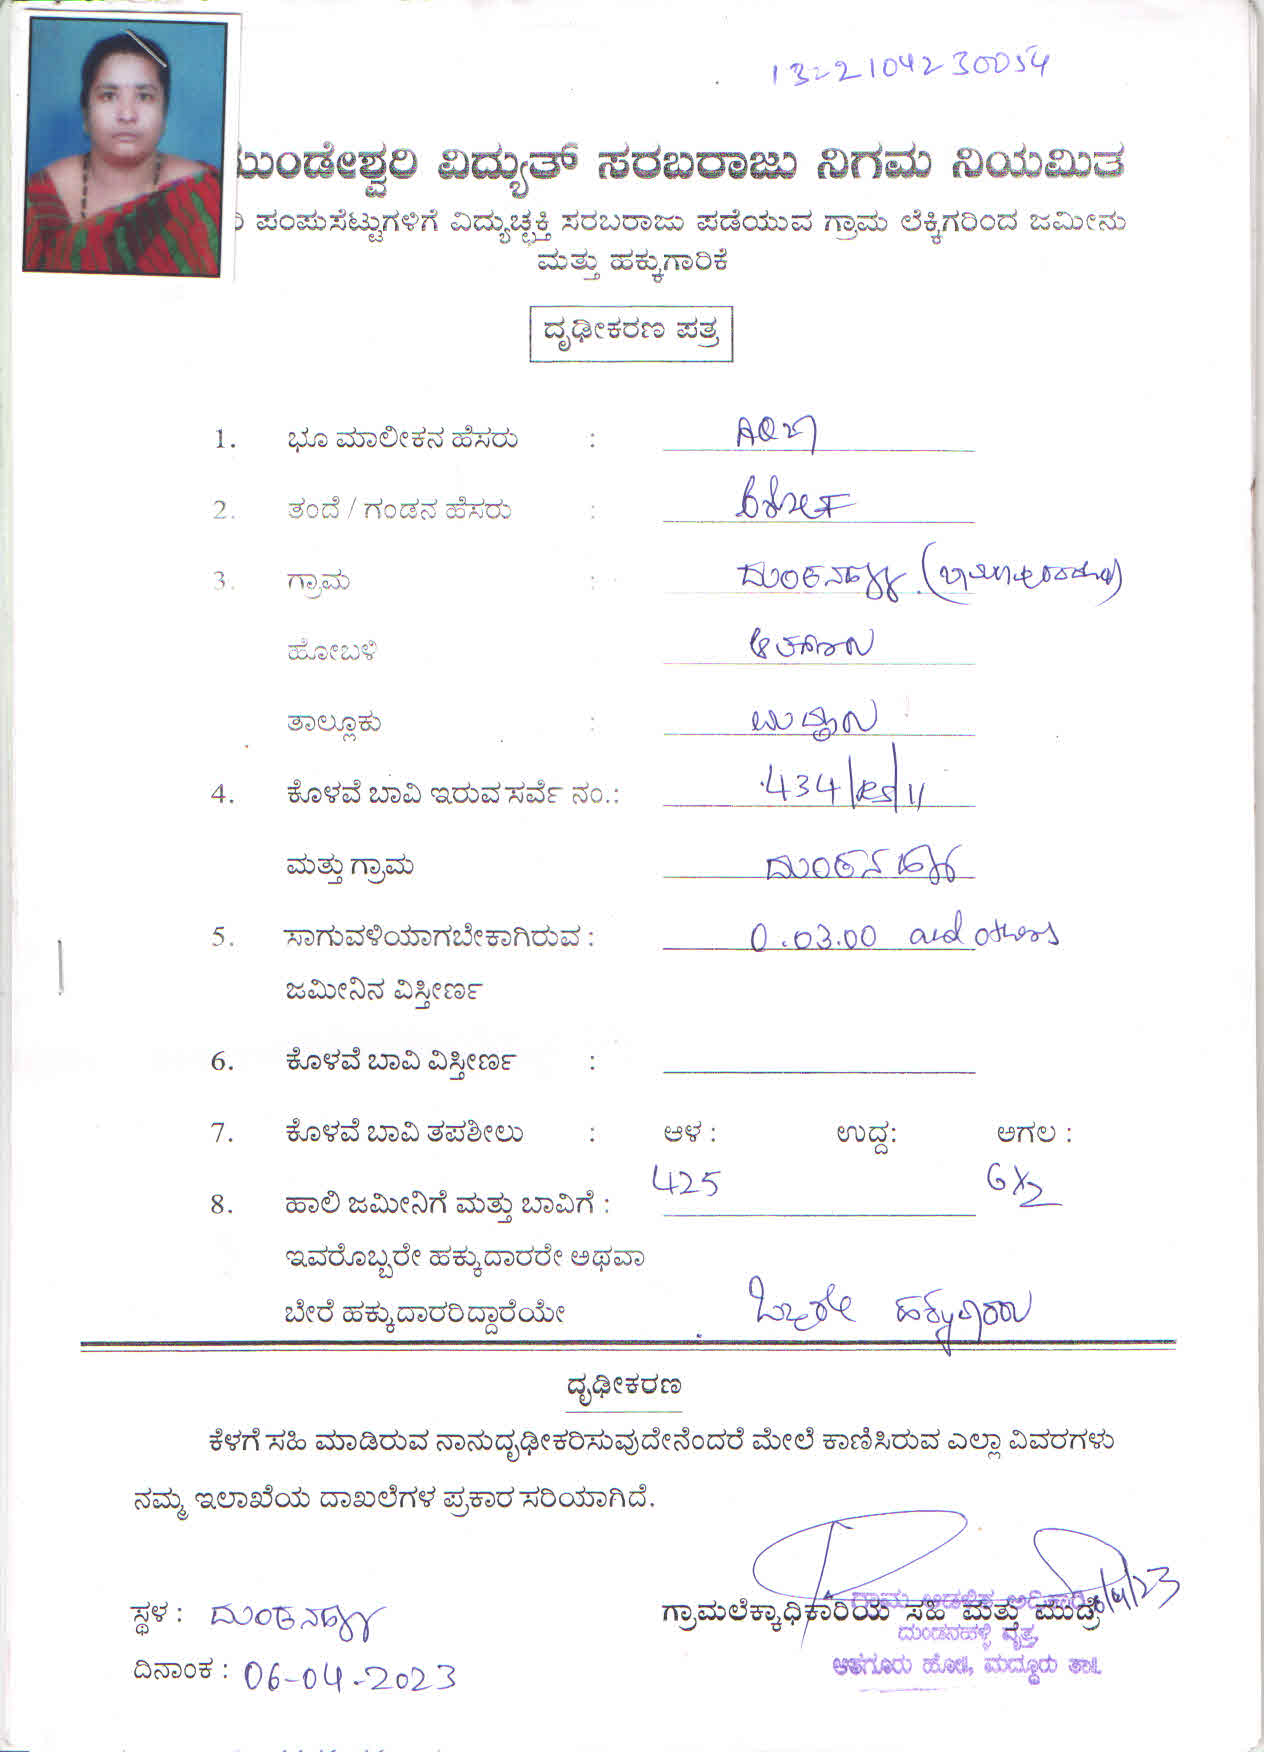 13-2104230054
ಮುಂಡೇಶ್ವರಿ ವಿದ್ಯುತ್ ಸರಬರಾಜು ನಿಗಮ ನಿಯಮಿತ
ಪಂಪುಸೆಟ್ಟುಗಳಿಗೆ ವಿದ್ಯುಚ್ಛಕ್ತಿ ಸರಬರಾಜು ಪಡೆಯುವ ಗ್ರಾಮ ಲೆಕ್ಕಿಗರಿಂದ ಜಮೀನು
ಮತ್ತು ಹಕ್ಕುಗಾರಿಕೆ
ದೃಢೀಕರಣ ಪತ್ರ
1. ಭೂ ಮಾಲೀಕನ ಹೆಸರು :
2. ತಂದೆ / ಗಂಡನ ಹೆಸರು :
3. ಗ್ರಾಮ : ದುಂಡನಹಳ್ಳಿ
ಹೋಬಳಿ ಆತಗೂರು
ತಾಲ್ಲೂಕು : ಮದ್ದೂರು
4. ಕೊಳವೆ ಬಾವಿ ಇರುವ ಸರ್ವೆ ನಂ.: 434/
ಮತ್ತು ಗ್ರಾಮ ದುಂಡನಹಳ್ಳಿ
5. ಸಾಗುವಳಿಯಾಗಬೇಕಾಗಿರುವ : 0.03.00 and others
ಜಮೀನಿನ ವಿಸ್ತೀರ್ಣ
6. ಕೊಳವೆ ಬಾವಿ ವಿಸ್ತೀರ್ಣ :
7. ಕೊಳವೆ ಬಾವಿ ತಪಶೀಲು : ಆಳ : ಉದ್ದ: ಅಗಲ :
425 6½
8. ಹಾಲಿ ಜಮೀನಿಗೆ ಮತ್ತು ಬಾವಿಗೆ :
ಇವರೊಬ್ಬರೇ ಹಕ್ಕುದಾರರೇ ಅಥವಾ
ಬೇರೆ ಹಕ್ಕುದಾರರಿದ್ದಾರೆಯೇ ಒಬ್ಬರೇ ಹಕ್ಕುದಾರರು
ದೃಢೀಕರಣ
ಕೆಳಗೆ ಸಹಿ ಮಾಡಿರುವ ನಾನುದೃಢೀಕರಿಸುವುದೇನೆಂದರೆ ಮೇಲೆ ಕಾಣಿಸಿರುವ ಎಲ್ಲಾ ವಿವರಗಳು
ನಮ್ಮ ಇಲಾಖೆಯ ದಾಖಲೆಗಳ ಪ್ರಕಾರ ಸರಿಯಾಗಿದೆ.
ಸ್ಥಳ : ದುಂಡನಹಳ್ಳಿ
ಗ್ರಾಮ ಆಡಳಿತ ಅಧಿಕಾರಿ
ಗ್ರಾಮಲೆಕ್ಕಾಧಿಕಾರಿಯ ಸಹಿ ಮತ್ತು ಮುದ್ರೆ
ದುಂಡನಹಳ್ಳಿ ವೃತ್ತ,
ದಿನಾಂಕ : 06-04-2023
ಆತಗೂರು ಹೋ||, ಮದ್ದೂರು ತಾ||